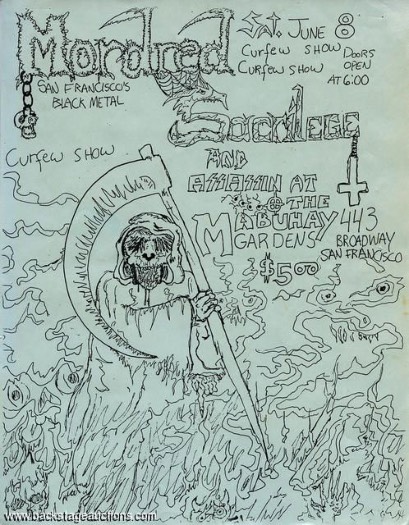 Mordred
SAT. JUNE 8
CURFEW SHOW
CURFEW SHOW
DOORS
OPEN
AT 6:00
SAN FRANCISCO'S
BLACK METAL
Sacrilege
CURFEW SHOW
AND
ASSASSIN AT
THE
MABUHAY
GARDENS
443
BROADWAY
SAN FRANCISCO
$5.00
www.backstageauctions.com